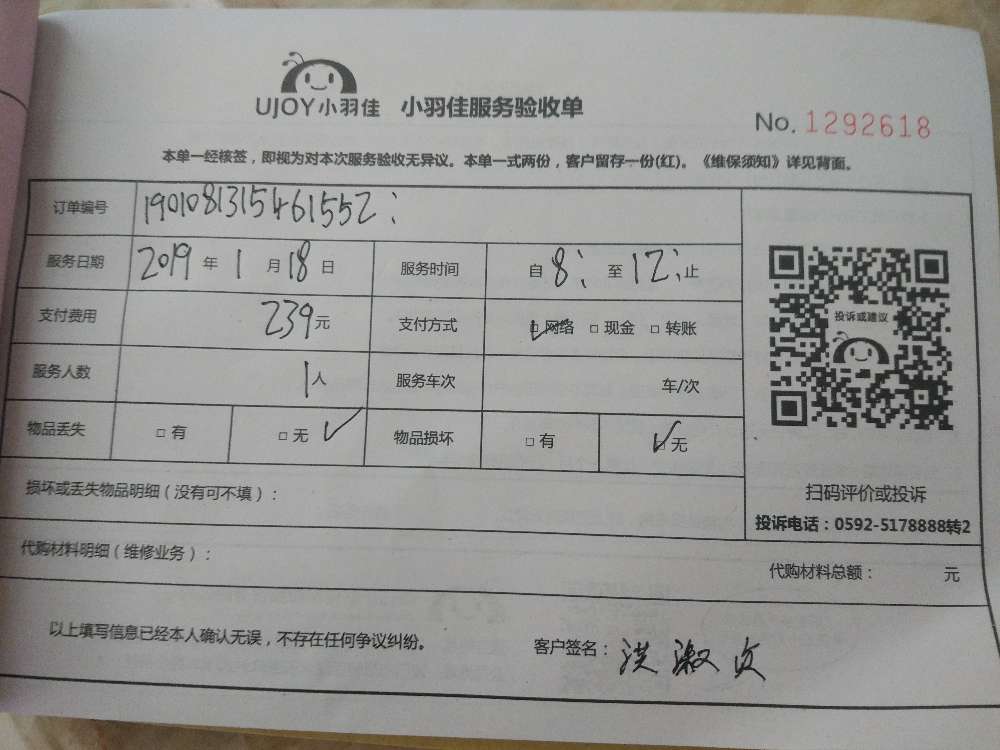 UJOY小羽佳 小羽佳服务验收单
No. 1292618
本单一经核签，即视为对本次服务验收无异议。本单一式两份，客户留存一份(红)。《维保须知》详见背面。
订单编号 1901081315461552：
服务日期 2019 年 1 月 18 日 服务时间 自 8： 至 12：止
支付费用 239元 支付方式 □网络 □现金 □转账
投诉或建议
服务人数 1人 服务车次 车/次
物品丢失 □有 □无 ✓ 物品损坏 □有 ✓□无
损坏或丢失物品明细（没有可不填）：
扫码评价或投诉
投诉电话：0592-5178888转2
代购材料明细（维修业务）：
代购材料总额： 元
以上填写信息已经本人确认无误，不存在任何争议纠纷。 客户签名：洪淑贞